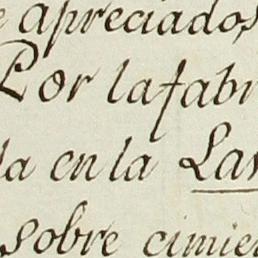 e apreciados
Por la fabr
la en la Lav
sobre cimie